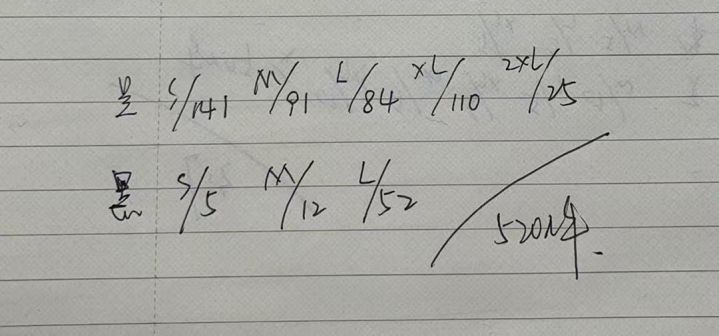 S/141 M/91 L/84 XL/110 2XL/25
S/5 M/12 L/52
520件.